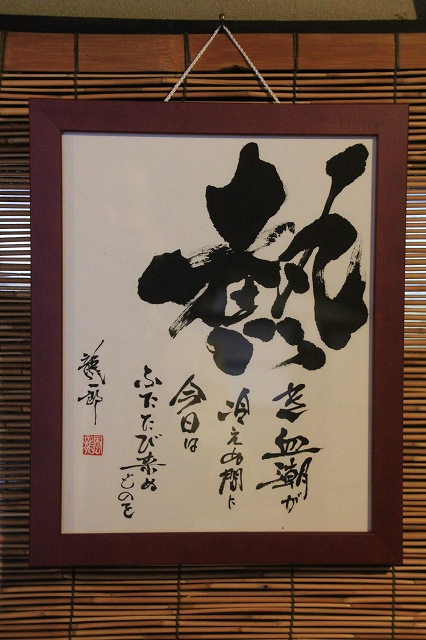 熱
き血潮が
冷えぬ間に
今日は
ふたたび来ぬ
ものを
龍一郎